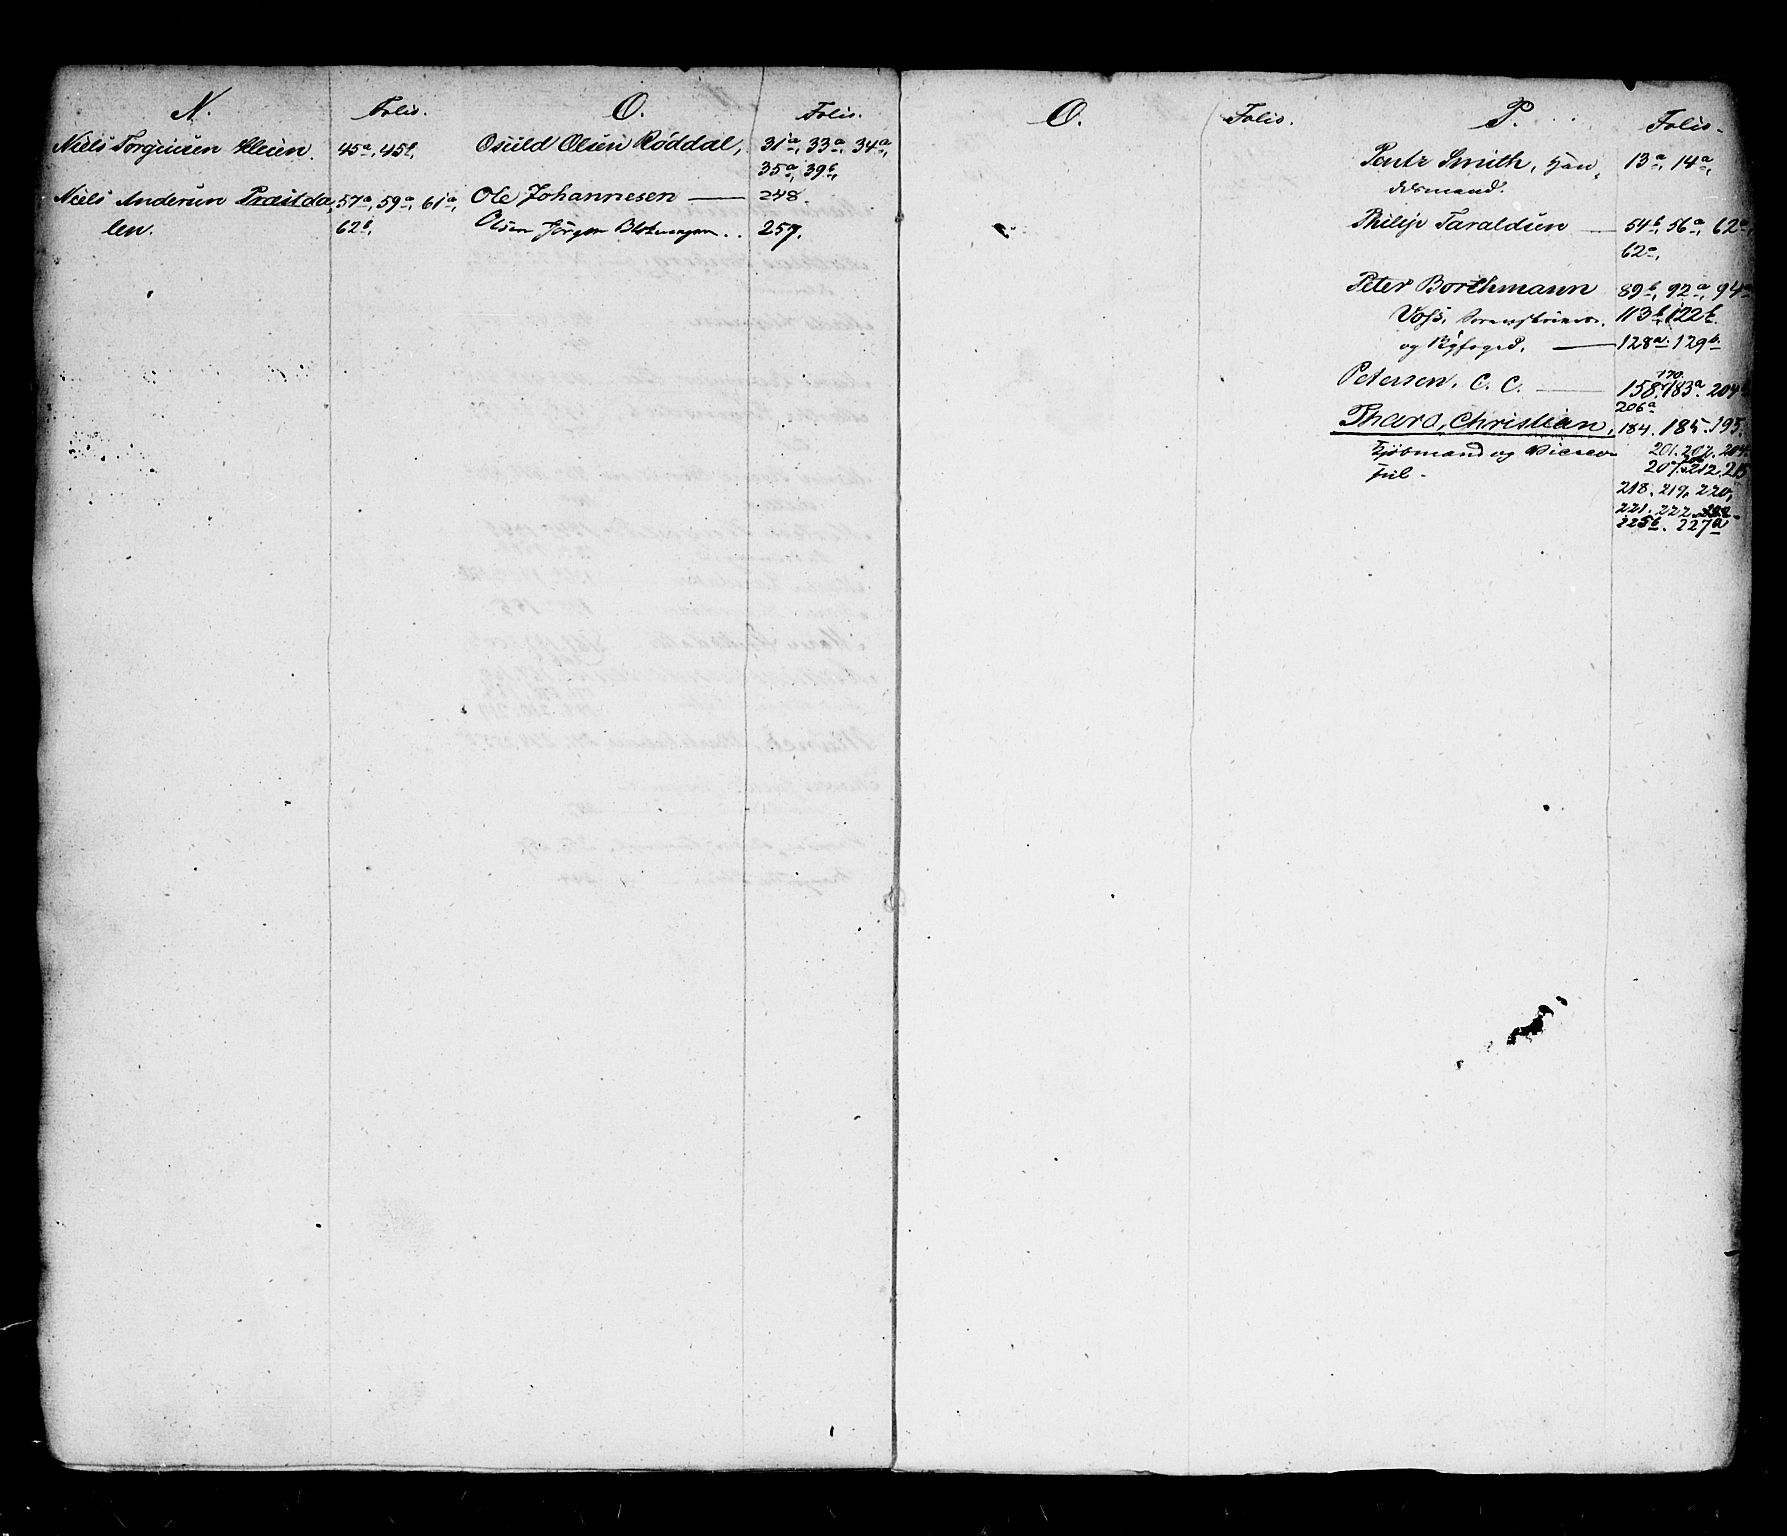 N. Folio.
Niels Torgiusen Kleien. 45a, 45b,
Niels Andersen Præstda, 57a, 59a, 61a,
len. 62b,
O. Folio.
Osuld Olsen Røddal, 31a, 33a, 34a,
35a, 39b,
Ole Johannesen — 248.
Olsen Jörgen .. 257.
O. Folio.
P. Folio.
Smith, Han, 13a, 14a,
delsmand.
Philip Taraldsen — 54b, 56a, 62a,
62a,
Peter Borthmann 89b, 92a, 94a
Voss, Sorenskriver. 113b, 122b.
og Byfoged. — 128a. 129b
Petersen, C. C. — 158. 170. 183a. 204
206a
Tharo, Christian, 184. 185. 195.
Kjøbmand og Vicecon 201. 202. 204.
sul. 207. 212. 215
218. 219. 220,
221. 222.
225b. 227a